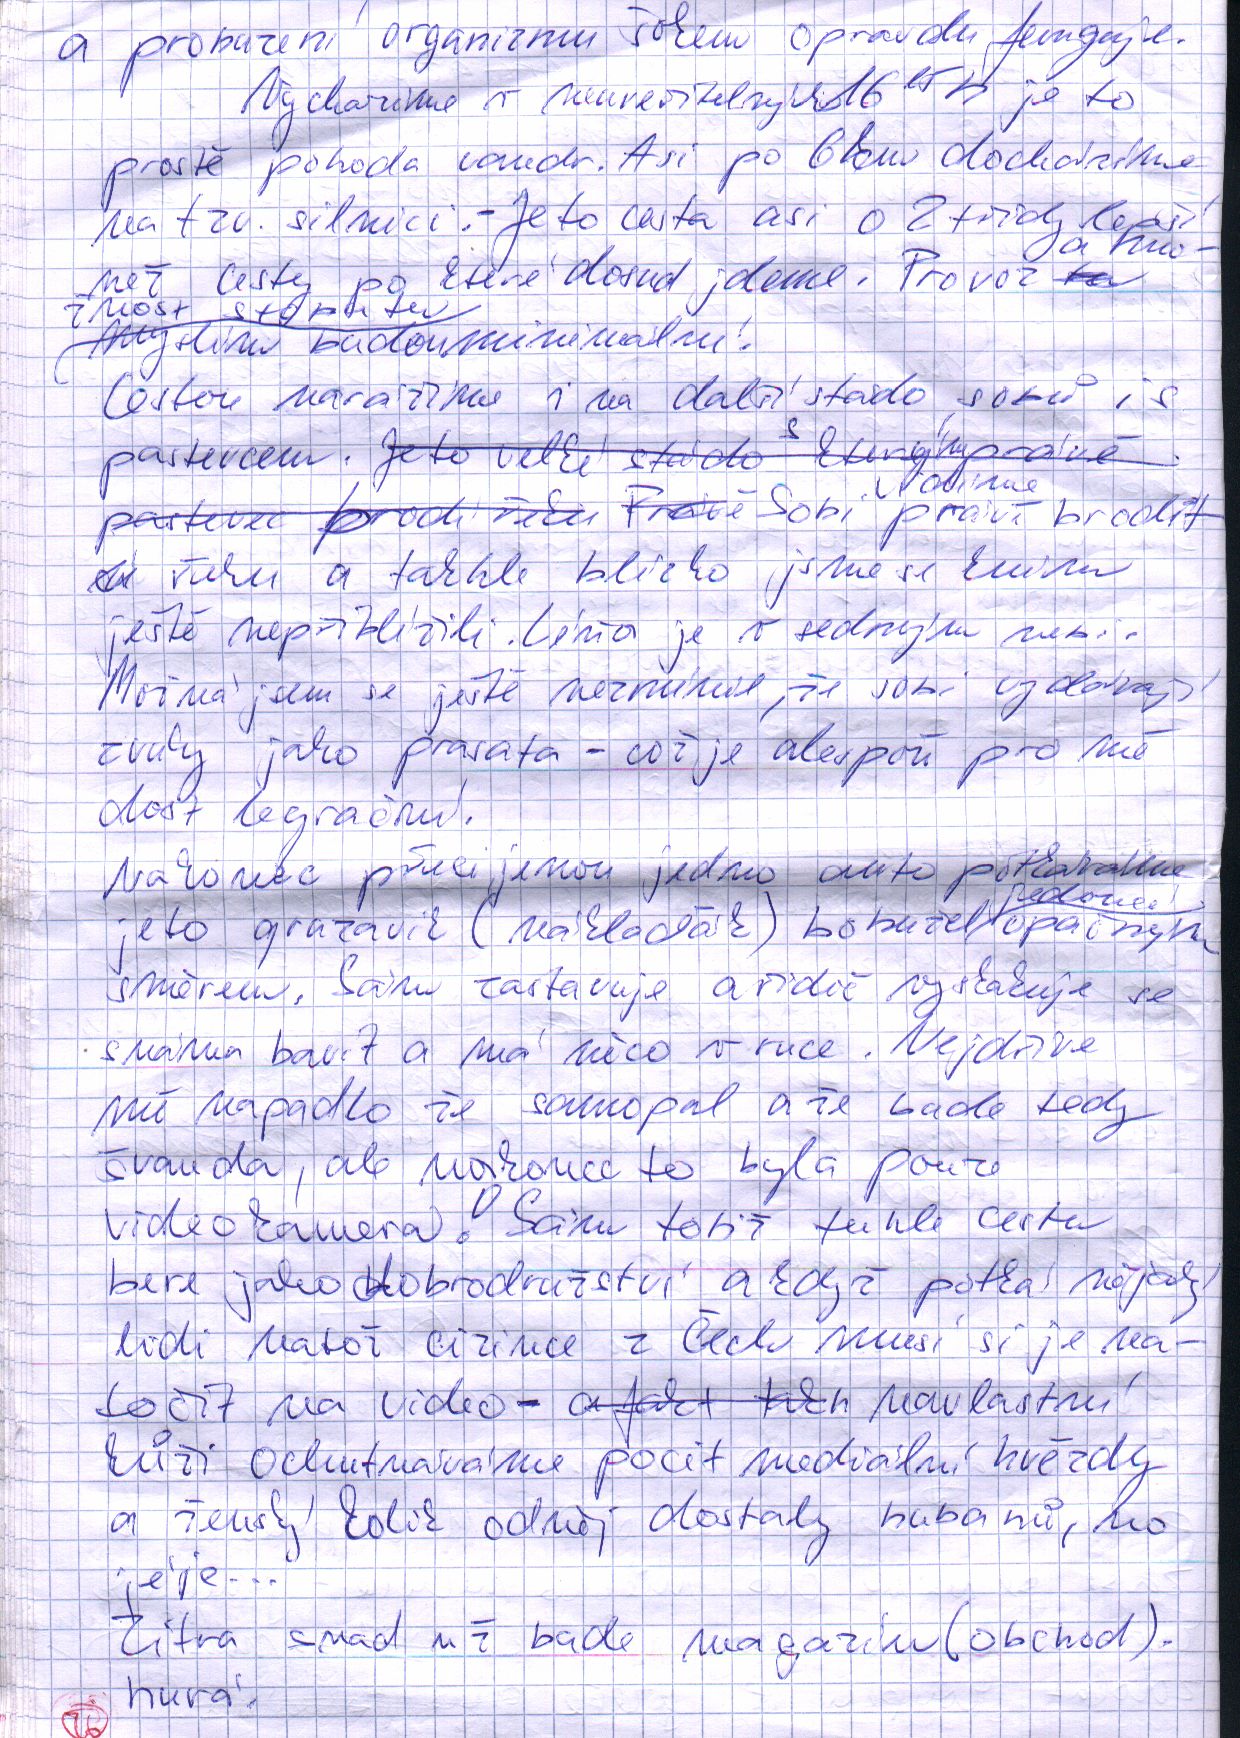 a probuzení organizmu šokem opravdu funguje.
Vycházíme v neuvěřitelných 16 15 h je to
prostě pohoda vandr. Asi po 6km docházíme
na tzv. silnici. - Je to cesta asi o 2 třídy lepší
než cesty po které dosud jdeme. Provoz a mno-
žnost stopnutu
myslím budou minimální.
Cestou narazíme i na další stádo sobů i s
pastevcem. Je to velké stádo s kterým právě
pastevec brodí řeku Právě Sobi vidíme právě brodit
řeku a takhle blízko jsme se k nim
ještě nepřiblížili. Líma je v sedmým nebi.
Možná jsem se ještě nezmínil, že sobi vydávají
zvuky jako prasata - což je alespoň pro mě
dost legrační.
Nakonec přeci jenom jedno auto potkáváme
je to gruzavik (náklaďák) bohužel jedoucí opačným
směrem. Sám zastavuje a řidič vyskakuje se
s náma bavit a má něco v ruce. Nejdříve
mě napadlo že samopal a že bude tedy
švanda, ale nakonec to byla pouze
videokamera. Sám totiž tuhle cestu
bere jako dobrodružství a když potká nějaký
lidi natož cizince z Čech musí si je na-
točit na video - a fakt na vlastní
kůži ochutnáváme pocit mediální hvězdy
a ženský kolik od něj dostaly bubanů, no
jéje...
Zítra snad už bude magazin (obchod).
hurá.